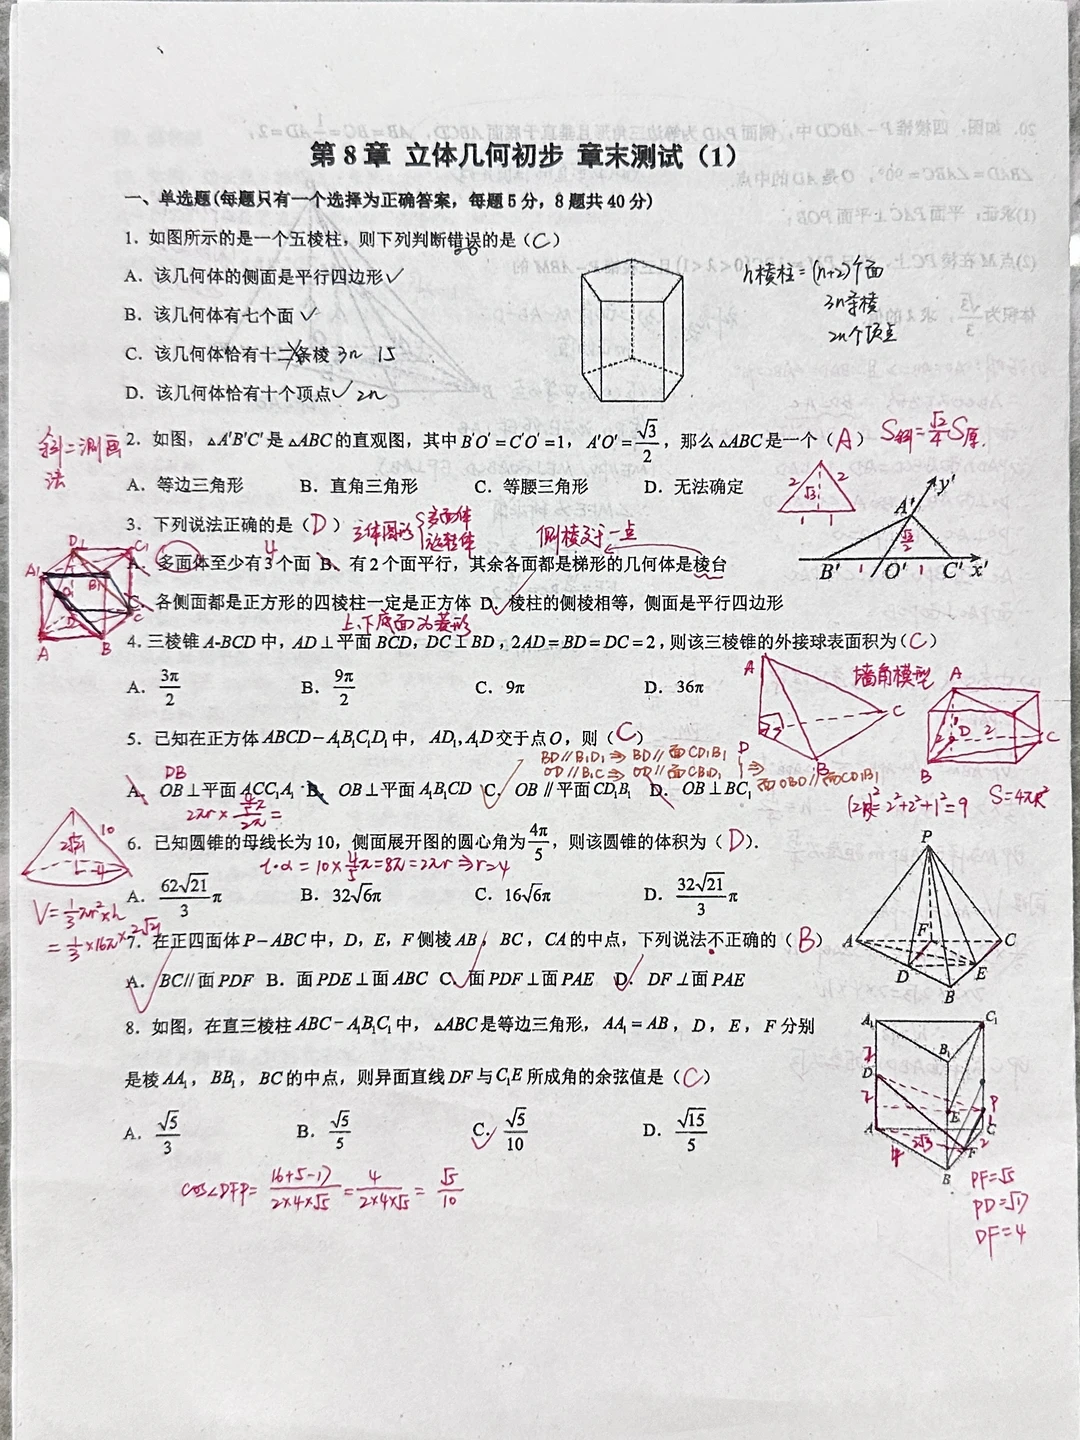 第 8 章 立体几何初步 章末测试（1）
一、单选题(每题只有一个选择为正确答案，每题 5 分，8 题共 40 分)
1．如图所示的是一个五棱柱，则下列判断错误的是（C）
A．该几何体的侧面是平行四边形✓
n棱柱=(n+2)个面
3n条棱
2n个顶点
B．该几何体有七个面✓
C．该几何体恰有十二条棱 3n 15
D．该几何体恰有十个顶点✓ 2n
斜二测画法
2．如图，△A'B'C'是△ABC的直观图，其中B'O'=C'O'=1，A'O'=√3/2，那么△ABC是一个（A）
S斜=√2/4 S原.
A．等边三角形 B．直角三角形 C．等腰三角形 D．无法确定
2 2 √3 1 1
y' A' √3/2 B' 1 O' 1 C' x'
3．下列说法正确的是（D）
立体图形{多面体 旋转体
侧棱交于一点
4
A．多面体至少有3个面 B．有2个面平行，其余各面都是梯形的几何体是棱台
C．各侧面都是正方形的四棱柱一定是正方体 D．棱柱的侧棱相等，侧面是平行四边形
上、下底面为菱形
D1 C1 A1 B1 O D C A B
4．三棱锥A-BCD中，AD⊥平面BCD，DC⊥BD，2AD=BD=DC=2，则该三棱锥的外接球表面积为（C）
A．3π/2 B．9π/2 C．9π D．36π
墙角模型
A C D B
A D 2 C B
(2R)²=2²+2²+1²=9 S=4πR²
5．已知在正方体ABCD-A₁B₁C₁D₁中，AD₁,A₁D交于点O，则（C）
BD∥B1D1⇒BD∥面CD1B1
OD∥B1C⇒OD∥面CB1D1
⇒面OBD∥面CD1B1
DB
A．OB⊥平面ACC₁A₁ B．OB⊥平面A₁B₁CD C．OB∥平面CD₁B₁ D．OB⊥BC₁
6．已知圆锥的母线长为10，侧面展开图的圆心角为4π/5，则该圆锥的体积为（D）．
l·α=10×4/5π=8π=2πr⇒r=4
10 2√21 4
A．62√21/3 π B．32√6π C．16√6π D．32√21/3 π
V=1/3πr²×h
=1/3×16π×2√21
7．在正四面体P-ABC中，D，E，F侧棱AB，BC，CA的中点，下列说法不正确的（B）
A．BC//面PDF B．面PDE⊥面ABC C．面PDF⊥面PAE D．DF⊥面PAE
P A F C D E B
8．如图，在直三棱柱ABC-A₁B₁C₁中，△ABC是等边三角形，AA₁=AB，D，E，F分别
是棱AA₁，BB₁，BC的中点，则异面直线DF与C₁E所成角的余弦值是（C）
A．√5/3 B．√5/5 C．√5/10 D．√15/5
A₁ C₁ B₁ 2 D 2 E P A 2√3 C 4 F 2 B
cos∠DFP=(16+5-17)/(2×4×√5)=4/(2×4×√5)=√5/10
PF=√5
PD=√17
DF=4